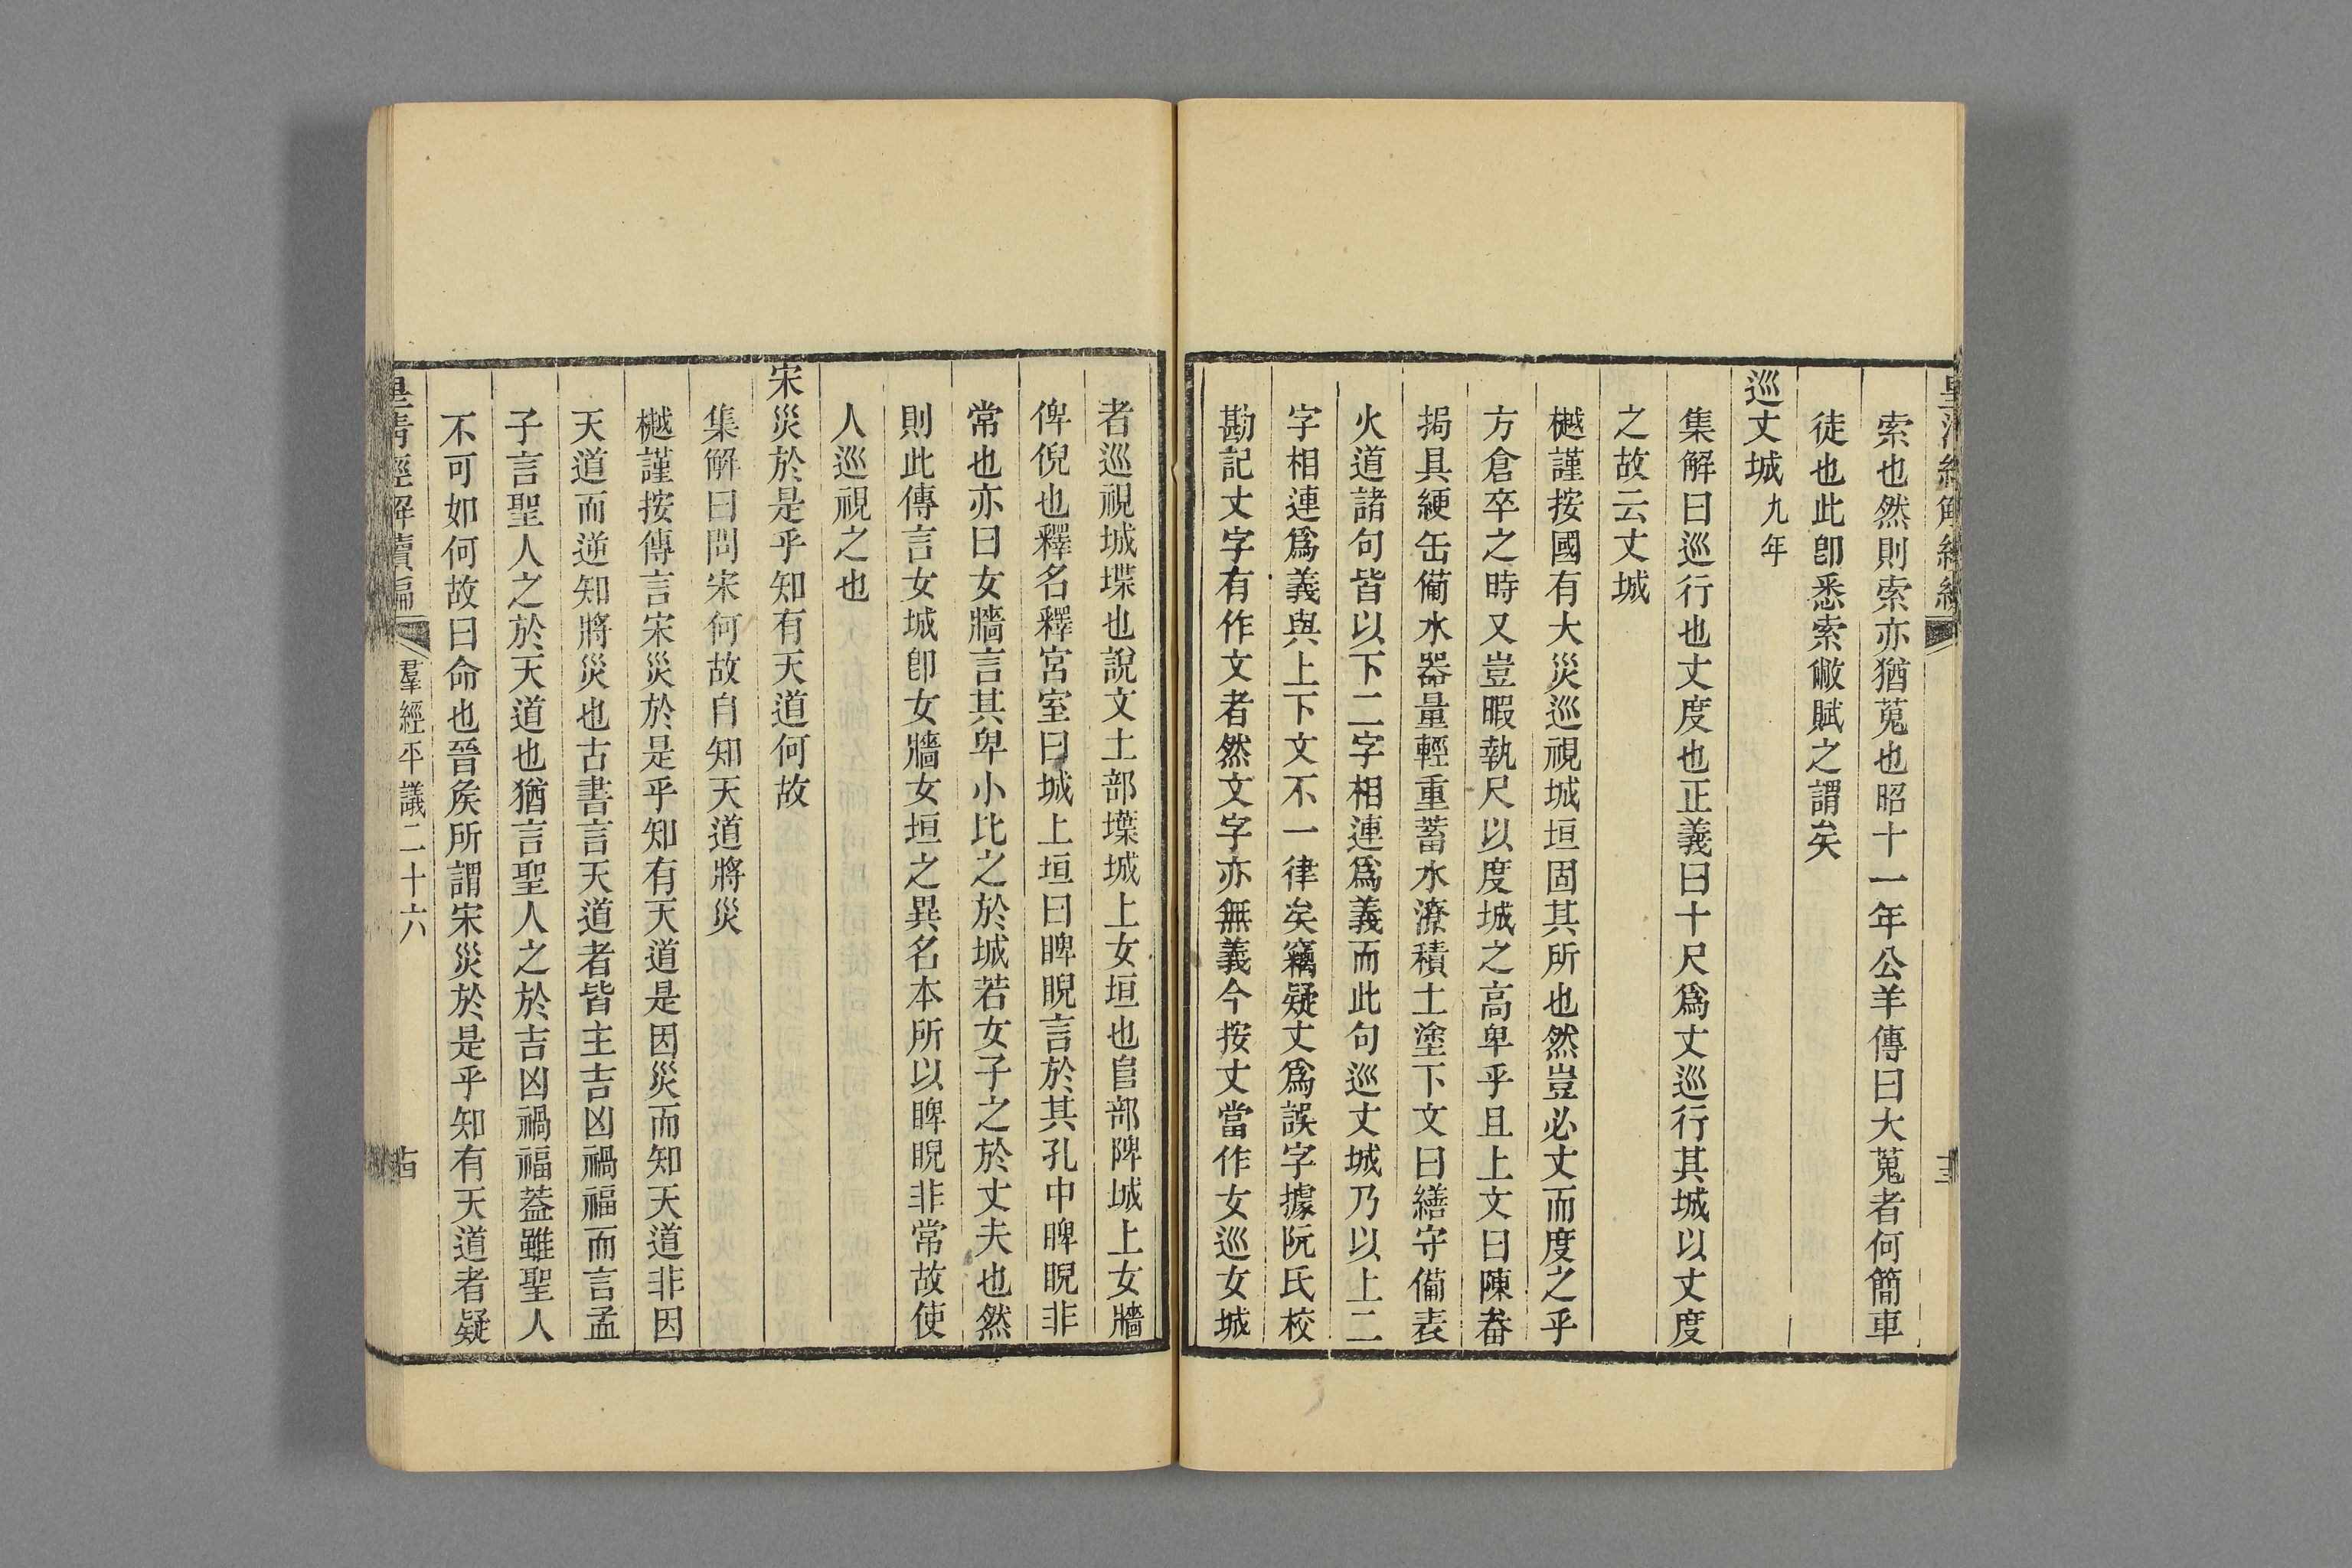 索也然則索亦猶蒐也昭十一年公羊傳曰大蒐者何簡車
徒也此卽悉索敝賦之謂矣
巡丈城九年
集解曰巡行也丈度也正義曰十尺爲丈巡行其城以丈度
之故云丈城
樾謹按國有大災巡視城垣固其所也然豈必丈而度之乎
方倉卒之時又豈暇執尺以度城之高卑乎且上文曰陳畚
挶具綆缶備水器量輕重蓄水潦積土塗下文曰繕守備表
火道諸句皆以下二字相連爲義而此句巡丈城乃以上二
字相連爲義與上下文不一律矣竊疑丈爲誤字據阮氏校
勘記丈字有作文者然文字亦無義今按丈當作女巡女城
者巡視城堞也說文土部堞城上女垣也𨸏部陴城上女牆
俾倪也釋名釋宮室曰城上垣曰睥睨言於其孔中睥睨非
常也亦曰女牆言其卑小比之於城若女子之於丈夫也然
則此傳言女城卽女牆女垣之異名本所以睥睨非常故使
人巡視之也
宋災於是乎知有天道何故
集解曰問宋何故自知天道將災
樾謹按傳言宋災於是乎知有天道是因災而知天道非因
天道而逆知將災也古書言天道者皆主吉凶禍福而言孟
子言聖人之於天道也猶言聖人之於吉凶禍福葢雖聖人
不可如何故曰命也晉矦所謂宋災於是乎知有天道者疑
皇清經解續編
羣經平議二十六